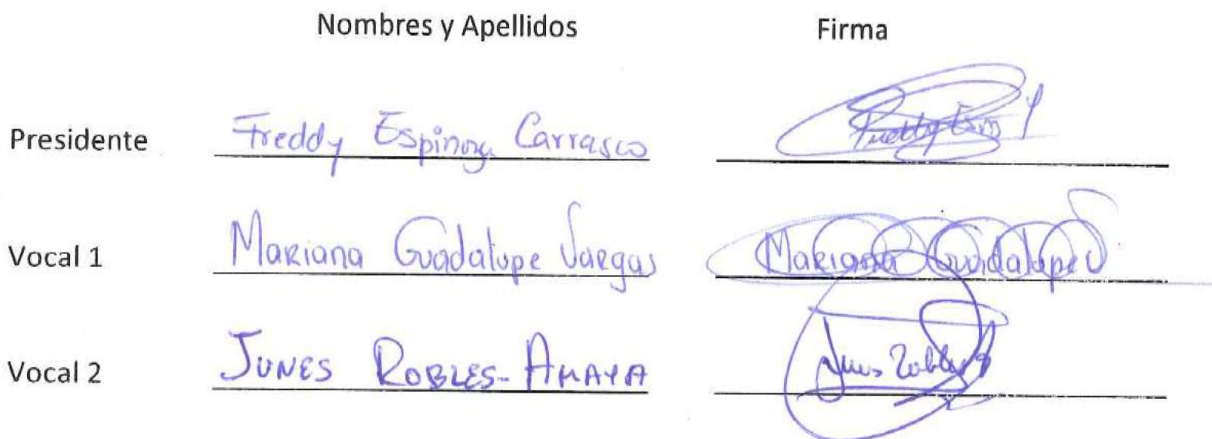 Nombres y Apellidos Firma
Presidente Freddy Espinoza Carrasco Freddy
Vocal 1 Mariana Guadalupe Vargas Mariana Guadalupe V
Vocal 2 JUNES ROBLES-AMAYA Junes Robles